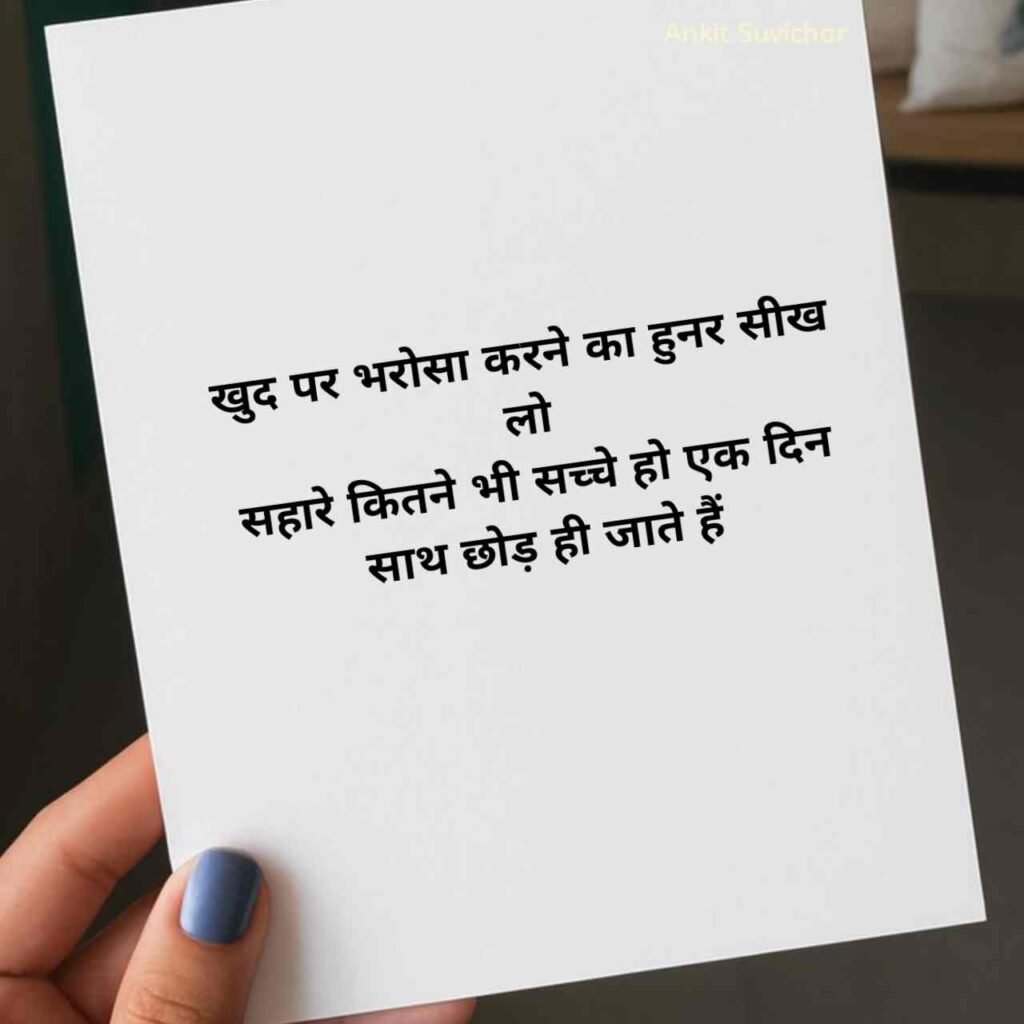 Ankit Suvichar
खुद पर भरोसा करने का हुनर सीख
लो
सहारे कितने भी सच्चे हो एक दिन
साथ छोड़ ही जाते हैं